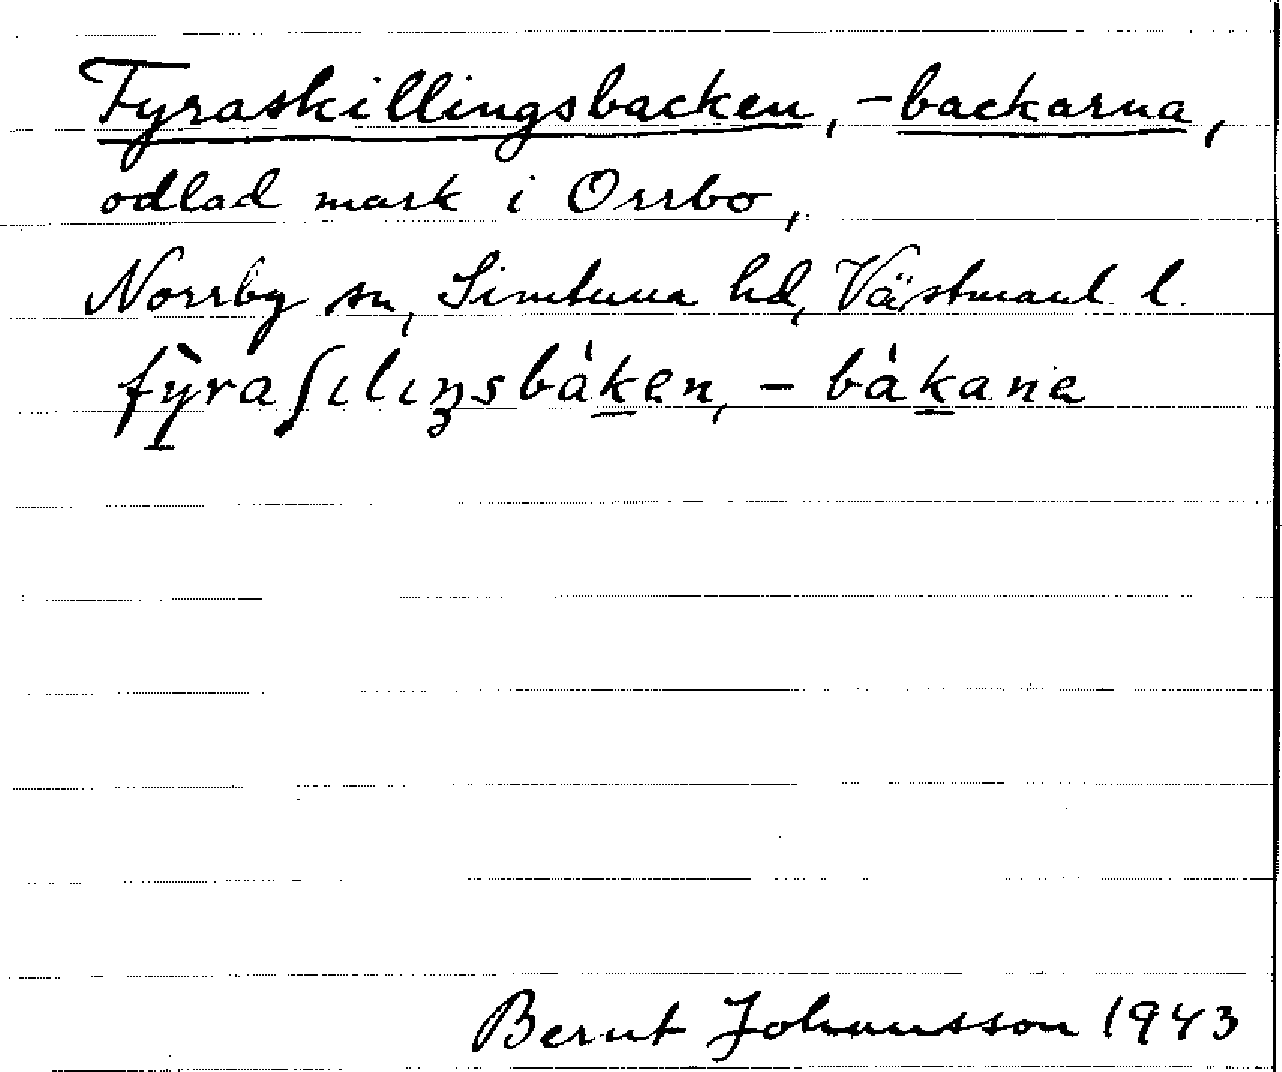 Fyraskillingsbacken, -backarna,
odlad mark i Orrbo,
Norrby sn, Simtuna hd, Västmanl. l.
fỳraʃılıŋsbáken, - bákana
Bernt Johansson 1943